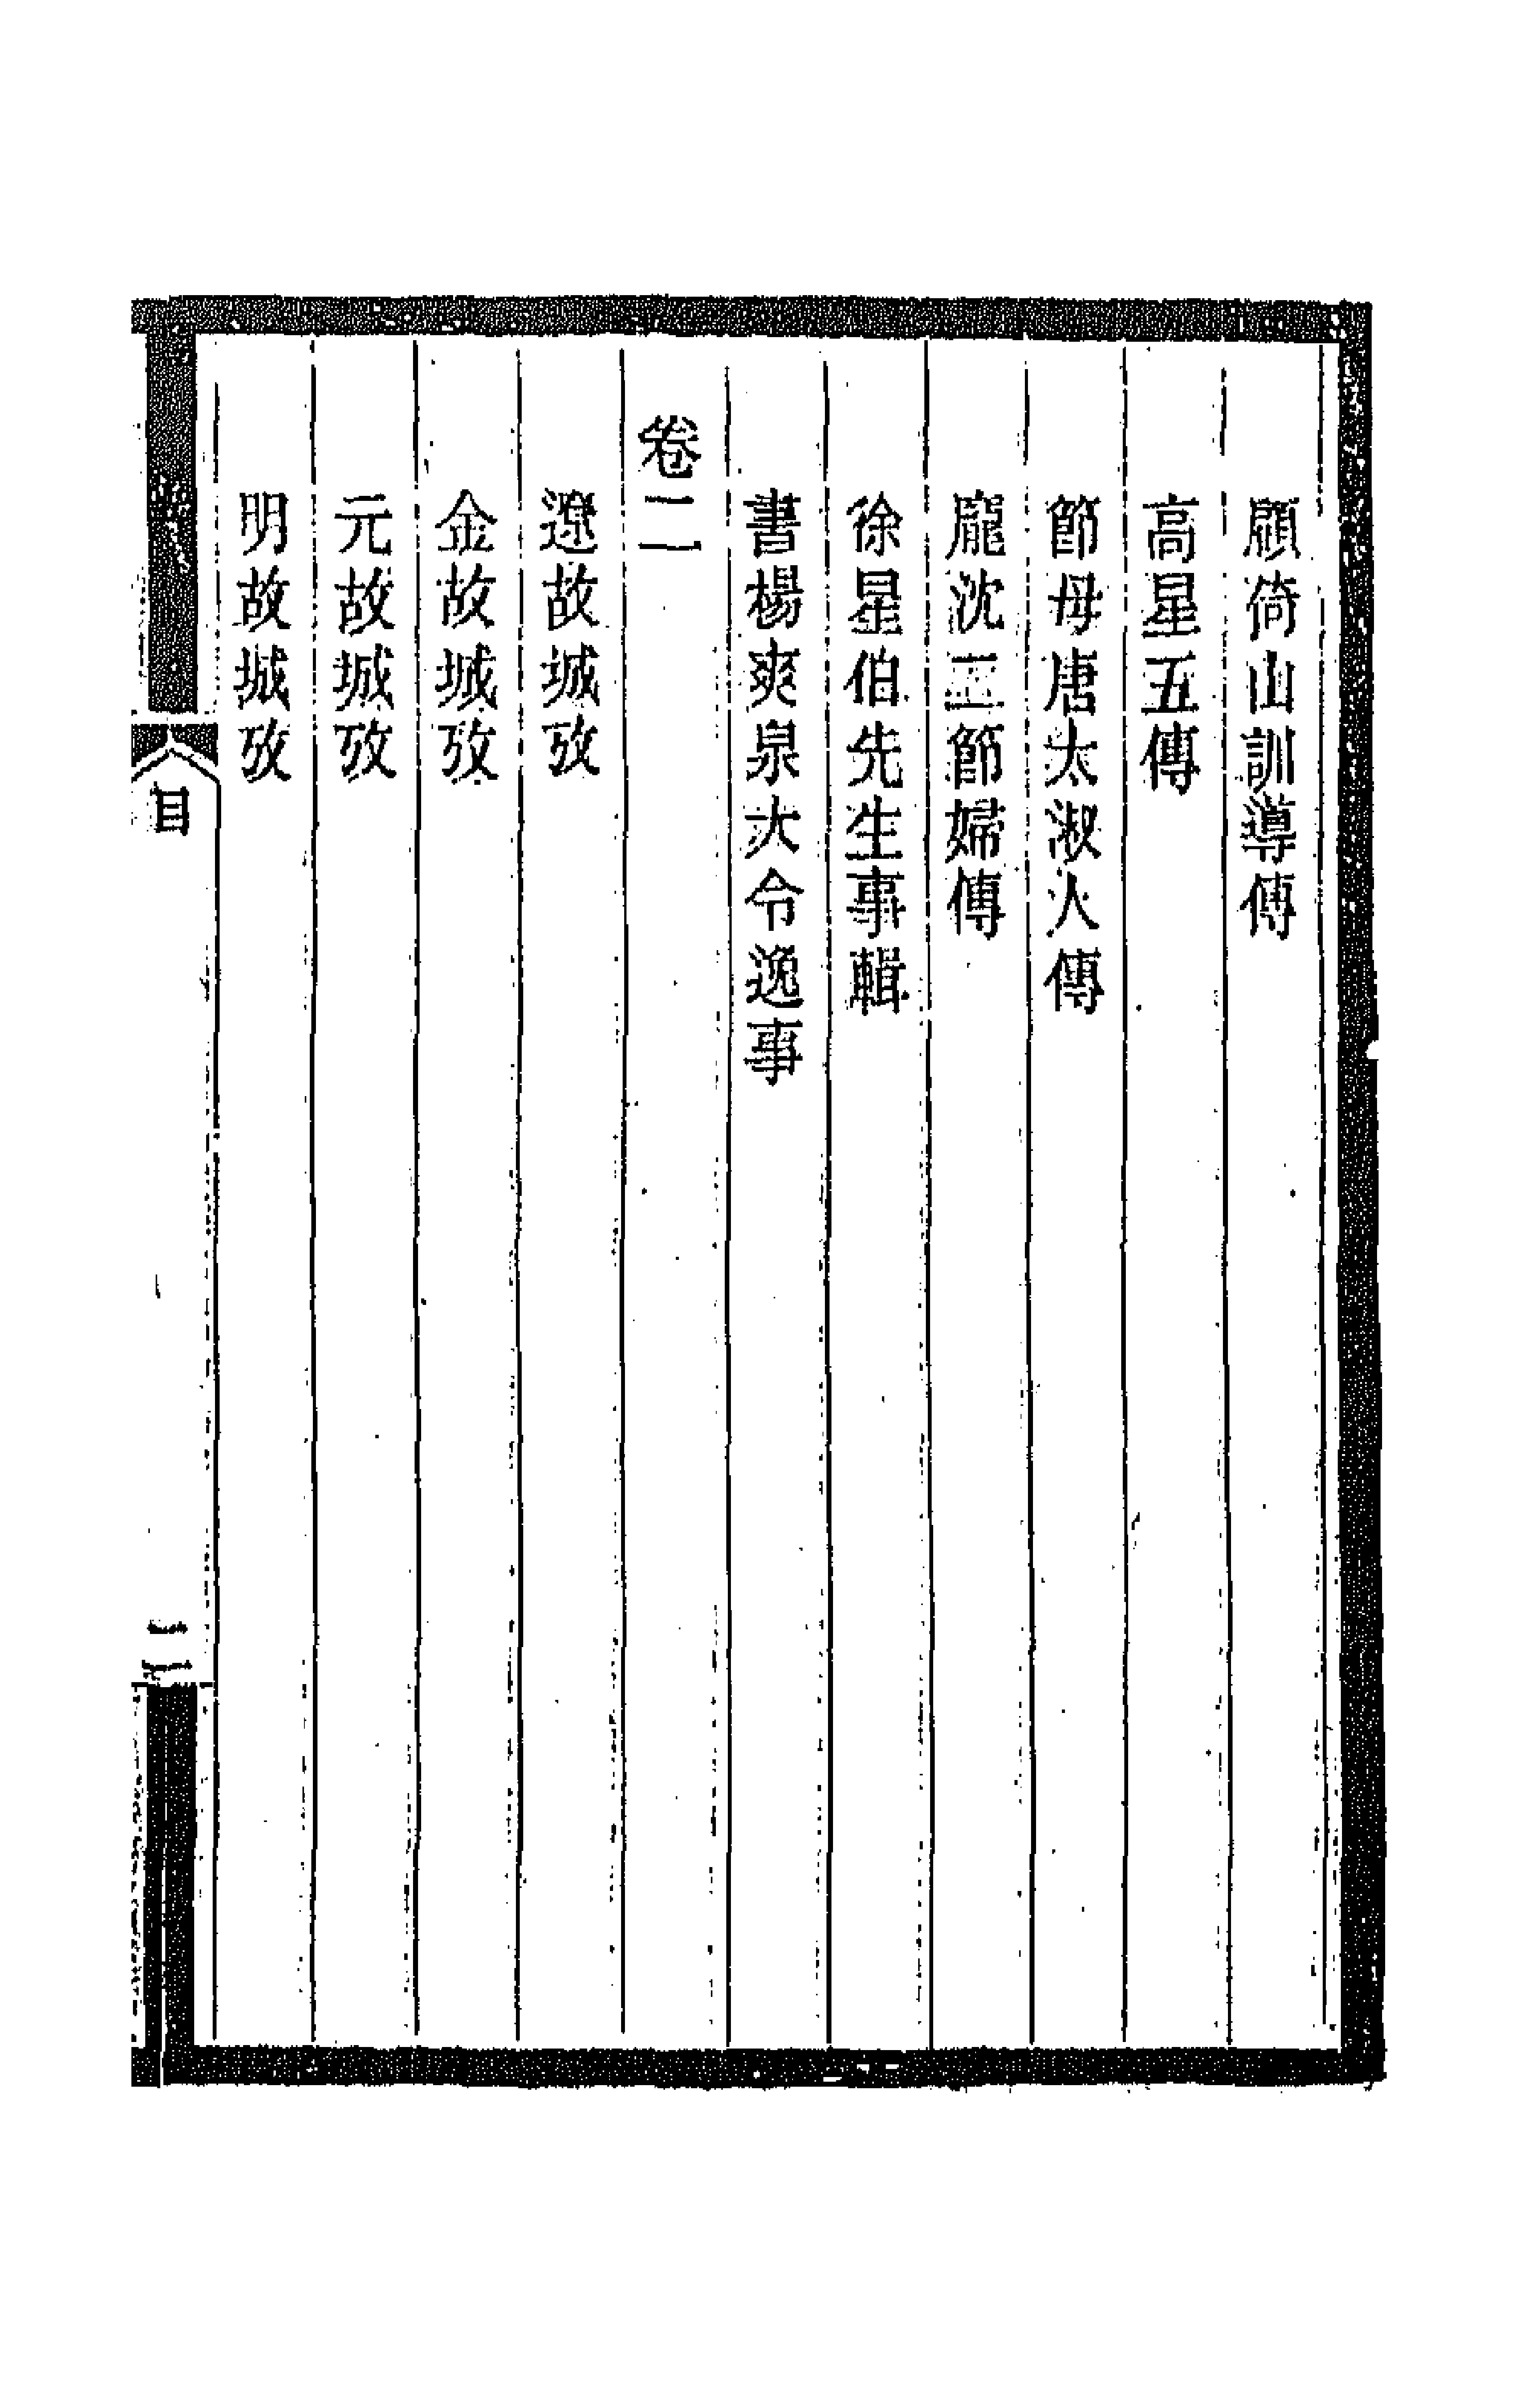 顧倚山訓導傳
高星五傳
節母唐太淑人傳
龐沈節婦傳
徐星伯先生事輯
書楊爽泉大令逸事
卷二
遼故城攷
金故城攷
元故城攷
明故城攷
目